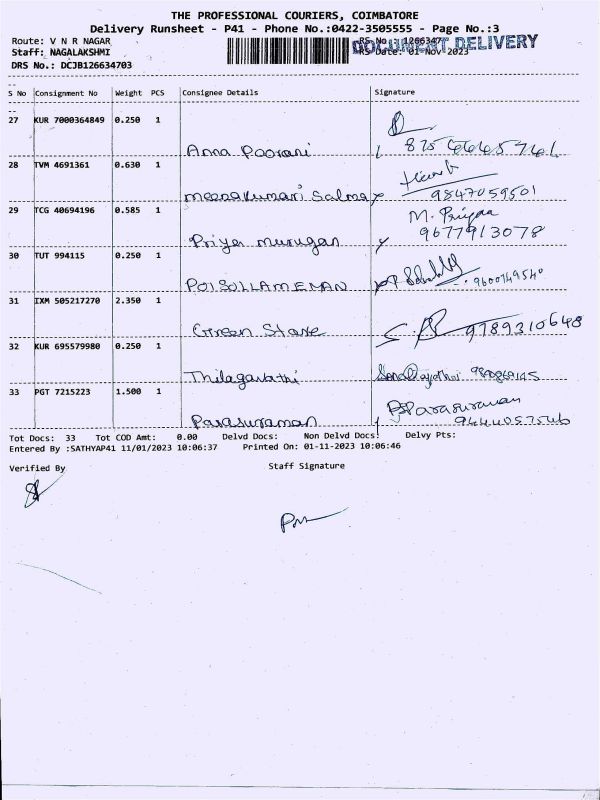 THE PROFESSIONAL COURIERS, COIMBATORE
Delivery Runsheet - P41 - Phone No.:0422-3505555 - Page No.:3
Route: V N R NAGAR
RS No.: 1266347
DOCUMENT DELIVERY
Staff: NAGALAKSHMI
RS Date: 01-Nov-2023
DRS No.: DCJB126634703
S No Consignment No Weight PCS Consignee Details Signature
27 KUR 7000364849 0.250 1
Anna Poorani
28 TVM 4691361 0.630 1
meenakumari Salma 9847059501
29 TCG 40694196 0.585 1 M. Priyaa
Priya murugan 9677913078
30 TUT 994115 0.250 1
POISOLLAMEMAN 9600749540
31 IXM 505217270 2.350 1
Green Stare 9789310648
32 KUR 695579980 0.250 1
Thilagavathi
33 PGT 7215223 1.500 1 PS Parasuraman
Parasuraman
Tot Docs: 33 Tot COD Amt: 0.00 Delvd Docs: Non Delvd Docs: Delvy Pts:
Entered By :SATHYAP41 11/01/2023 10:06:37 Printed On: 01-11-2023 10:06:46
Verified By Staff Signature